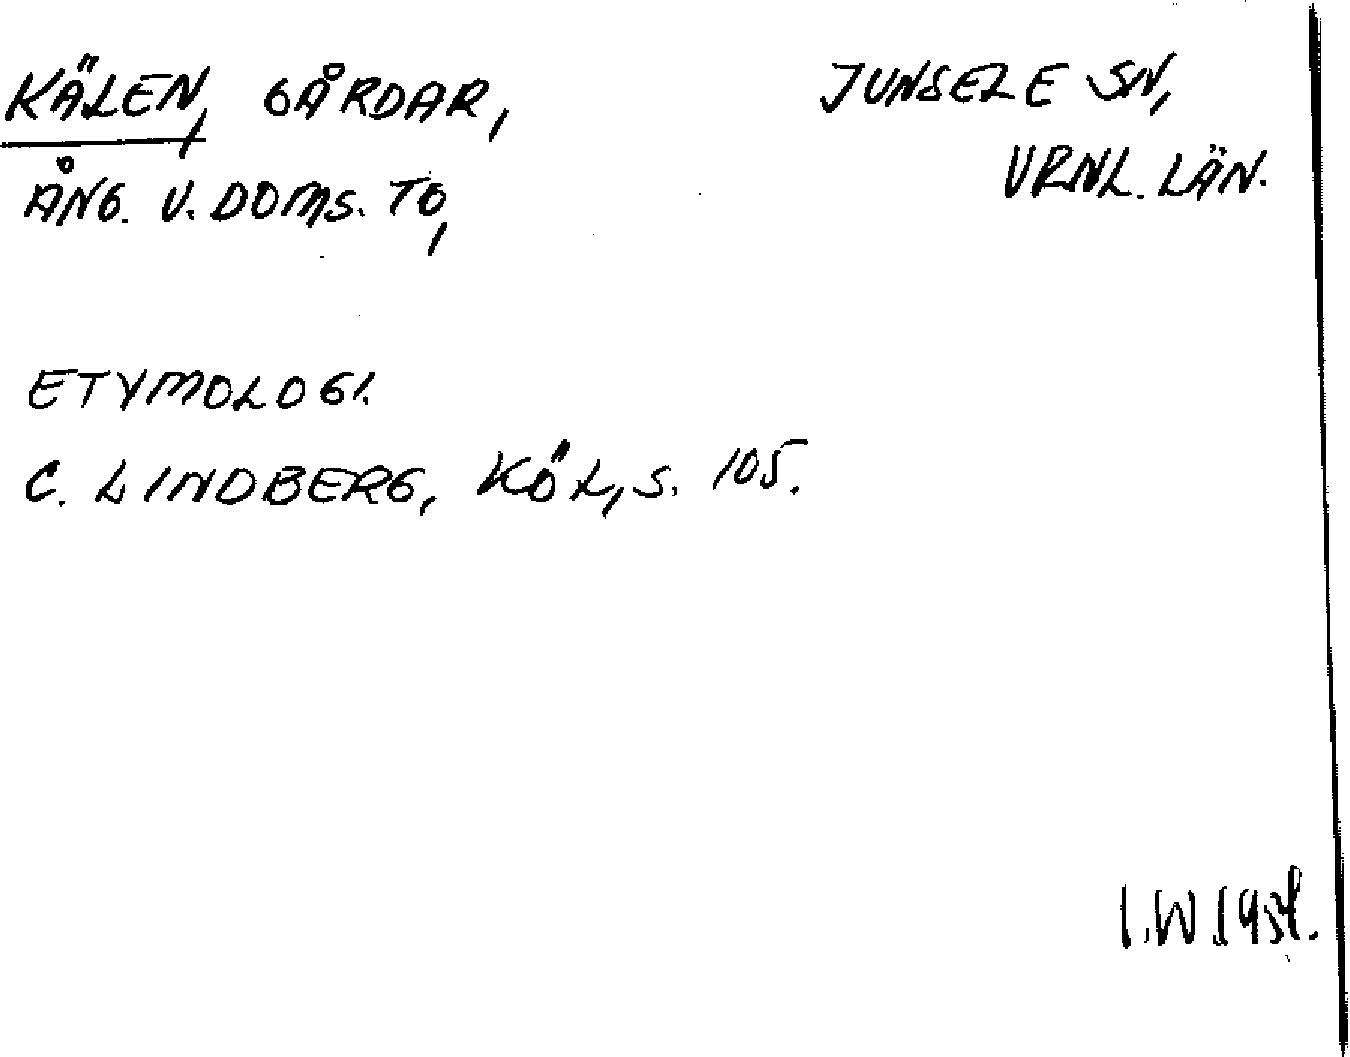 KÄLEN, GÅRDAR,
JUNSELE SN,
ÅNG. V. DOMS. TG,
VRNL. LÄN.
ETYMOLOGI.
C. LINDBERG, KÖL, S. 105.
I.W